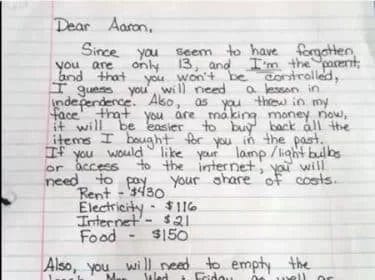 Dear Aaron,
Since you seem to have forgotten
you are only 13, and I'm the parent,
and that you won't be controlled,
I guess you will need a lesson in
independence. Also, as you threw in my
face that you are making money now,
it will be easier to buy back all the
items I bought for you in the past.
If you would like your lamp/light bulbs
or access to the internet, you will
need to pay your share of costs.
Rent - $430
Electricity - $116
Internet - $21
Food - $150
Also, you will need to empty the